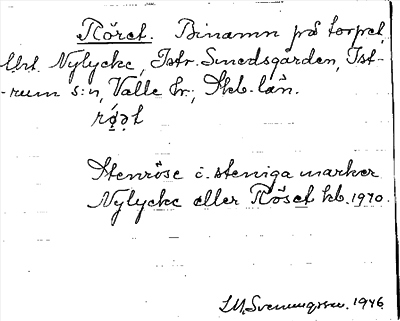 Röret. Binamn på torpet
Nylycke, Istr. Smedsgården, Ist-
-rum s:n, Valle hr; Skb. län.
Stenröse i steniga marker
Nylycke eller Röset kb. 1970.
1946